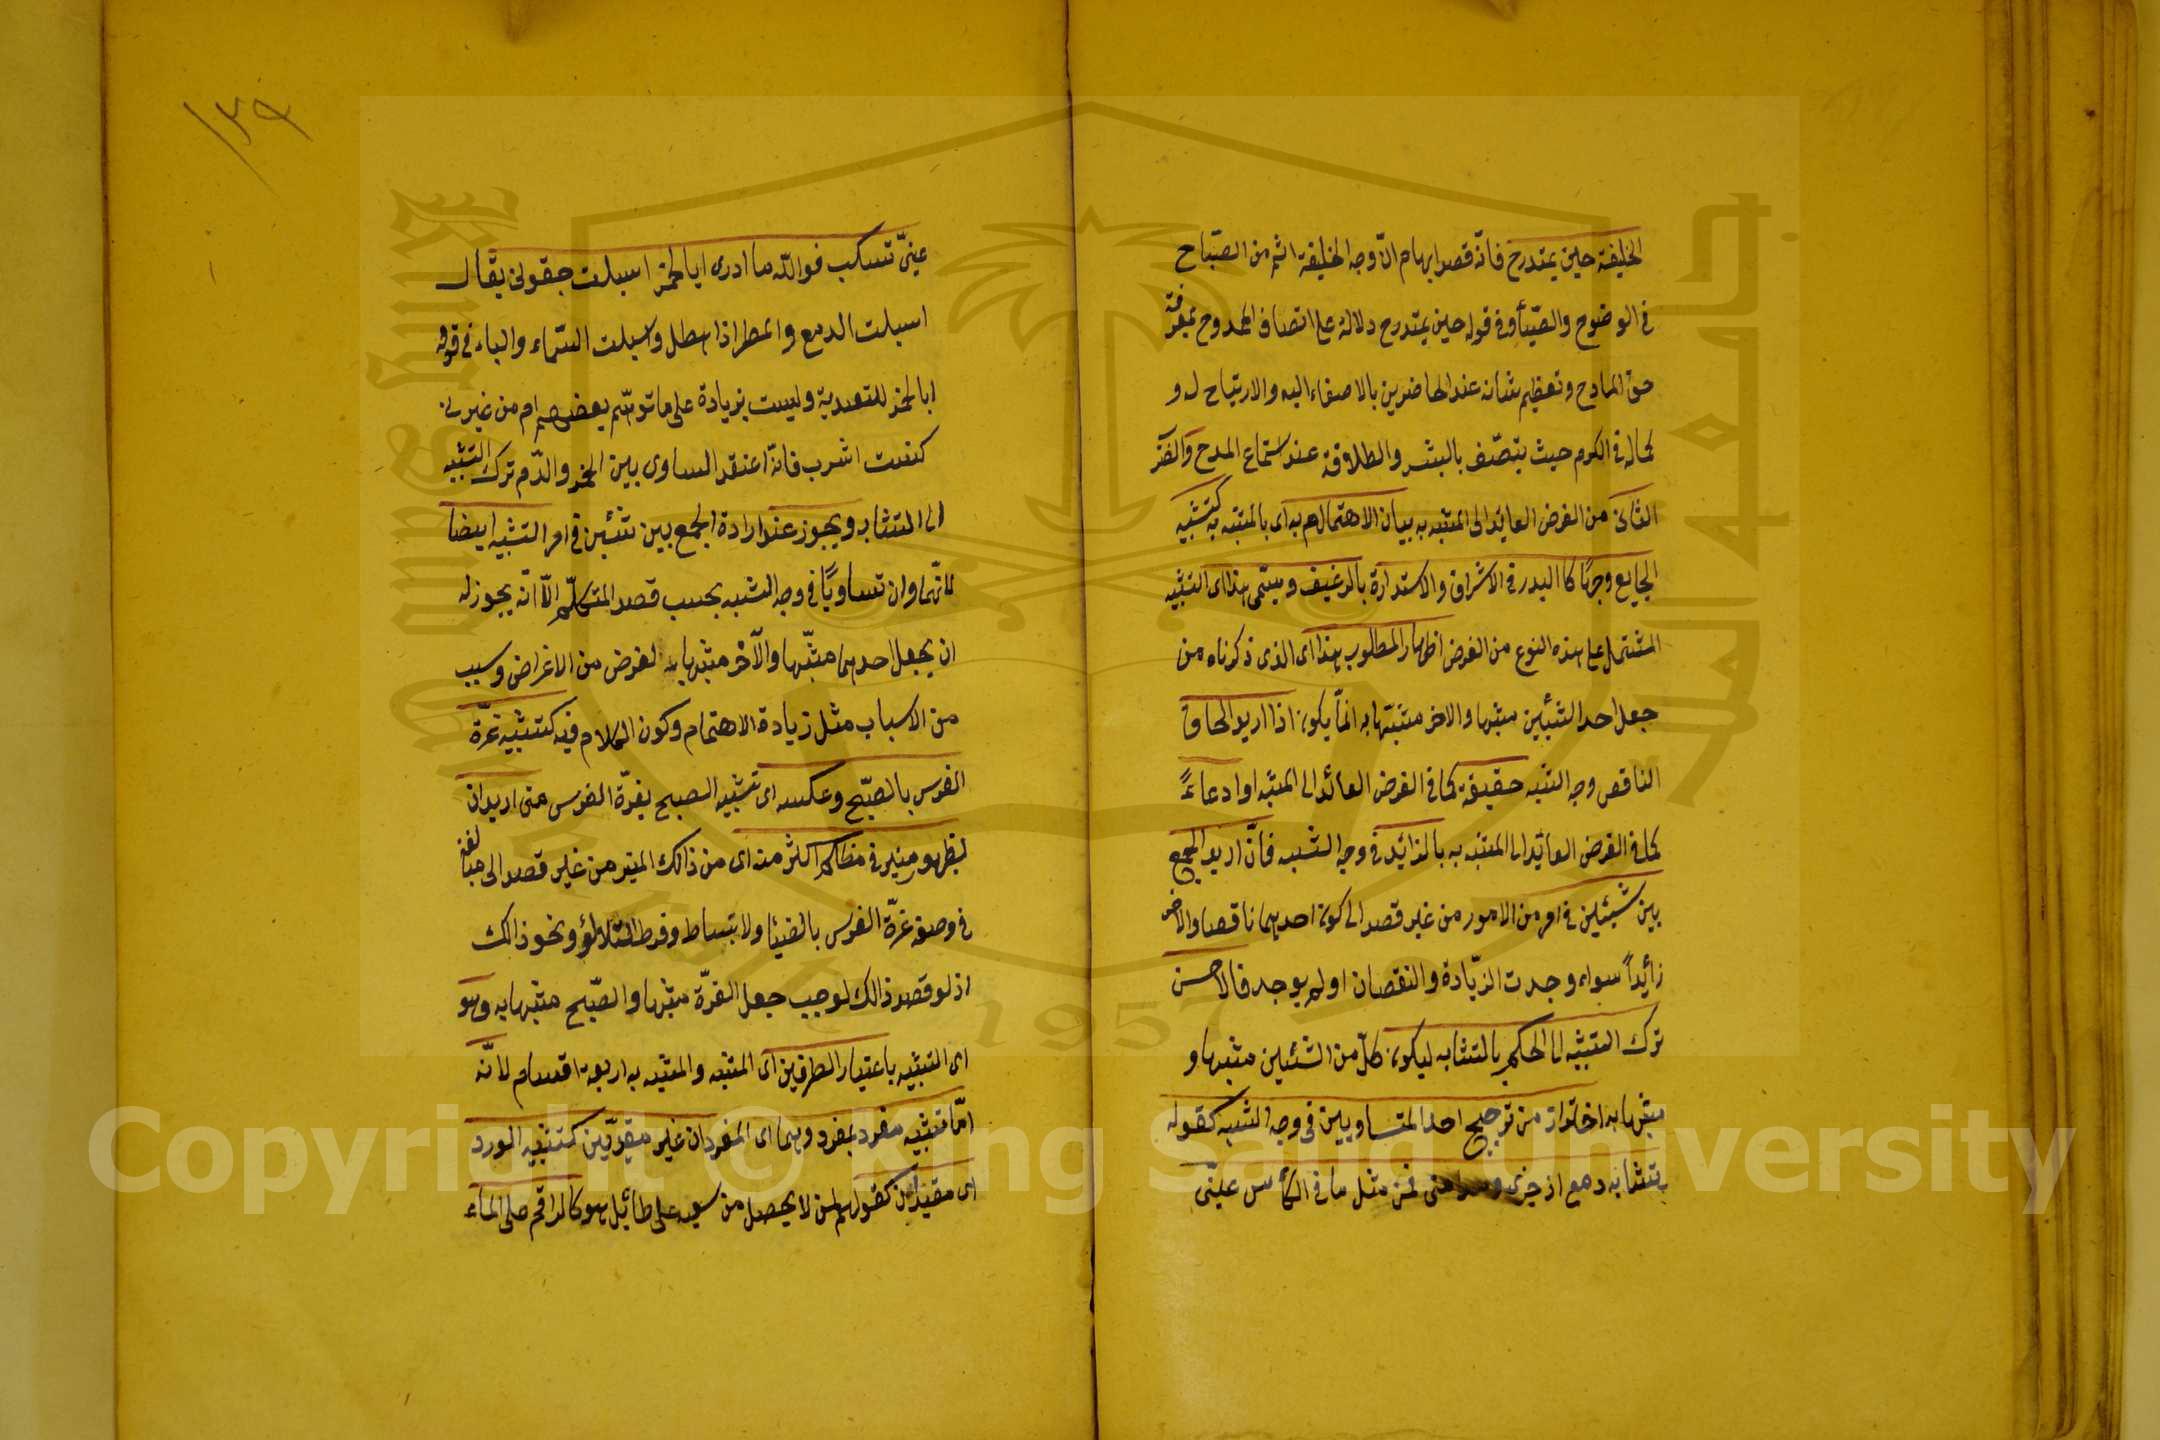 الخليفة حين يمتدح فانّه قصد ايهام انّ وجه الخليفة اتم من الصّباح
فى الوضوح والضّياء وفى قوله حين يمتدح دلالة على اتصاف الممدوح بمعرفة
حق المادح وتعظيم شانه عند الحاضرين بالاصغاء اليه والارتياح له و
كماله فى الكرم حيث يتصّف بالبشر والطلاقة عند استماع المدح والضرب
الثانى من الغرض العائد الى المشبه به بيان الاهتمام به اى بالمشبه به كتشبيه
الجايع وجهًا كالبدر فى الاشراق والاستدارة بالرغيف ويسمّى هذا اى التشبيه
المشتمل على هذه النوع من الغرض اظهار المطلوب هذا اى الذى ذكرناه من
جعل احد الشيئين مشبها والاخر مشبها به انمّا يكون اذا اريد الحاق
الناقص وجه الشبه حقيقة كما فى الغرض العائد الى المشبه او ادعاءً
كما فى الغرض العائد الى المشبه به بالزائد فى وجه الشبه فانّ اريد الجمع
بين شيئين فى امر من الامور من غير قصد الى كون احديهما ناقصا والاخر
زائداً سواء وجدت الزّيادة والنقصان او لم يوجد فالاحسن
ترك التشبيه الى الحكم بالتشابه ليكون كلّ من الشئين مشبها و
مشبها به احترازا من ترجيح احد المتساويين فى وجه الشبه كقوله
تشابه دمعى اذ جرى ومدامتى فمن مثل ما فى الكأس عينّى
١٢٩
عينىّ تسكب فوالله ما ادرى ابالخمر اسبلت جفونى يقال
اسبلت الدمع والمطر اذا هطل واسبلت السّماء والباء فى قوله
ابالخمر للتعدية وليست بزيادة على ما توهّم بعضهم ام من عبرتى
كنت اشرب فانّه اعتقد التساوى بين الخمر والدّم ترك التشبيه
الى التشابه ويجوز عند ارادة الجمع بين شئين فى امر التشبيه ايضا
لانّهما وان تساويًا فى وجه الشبه بحسب قصد المتكلّم الّا انّه يجوز له
ان يجعل احدهما مشبّها والآخر مشبها به لغرض من الاغراض وسبب
من الاسباب مثل زيادة الاهتمام وكون الكلام فيه كتشبيه غرّة
الفرس بالصّبح وعكسه اى تشبيه الصبح بغرّة الفرس متى اريد ان
يظهر منير فى مظلم اكثر منه اى من ذالك المنير من غير قصد الى مبالغة
فى وصف غرّة الفرس بالضيا والانبساط وفرط التلالؤ ونحو ذالك
اذ لو قصد ذالك لوجب جعل الغرّة مشبها والصّبح مشبها به وهو
اى التشبيه باعتبار الطرفين اى المشبه والمشبه به اربعة اقسام لانّه
امّا تشبيه مفرد بمفرد وهما اى المفردان غير مقيدّين كتشبيه الورد
اى مقيدان كقولهم لمن لا يحصل من سعيه على طائل هو كالراقم على الماء